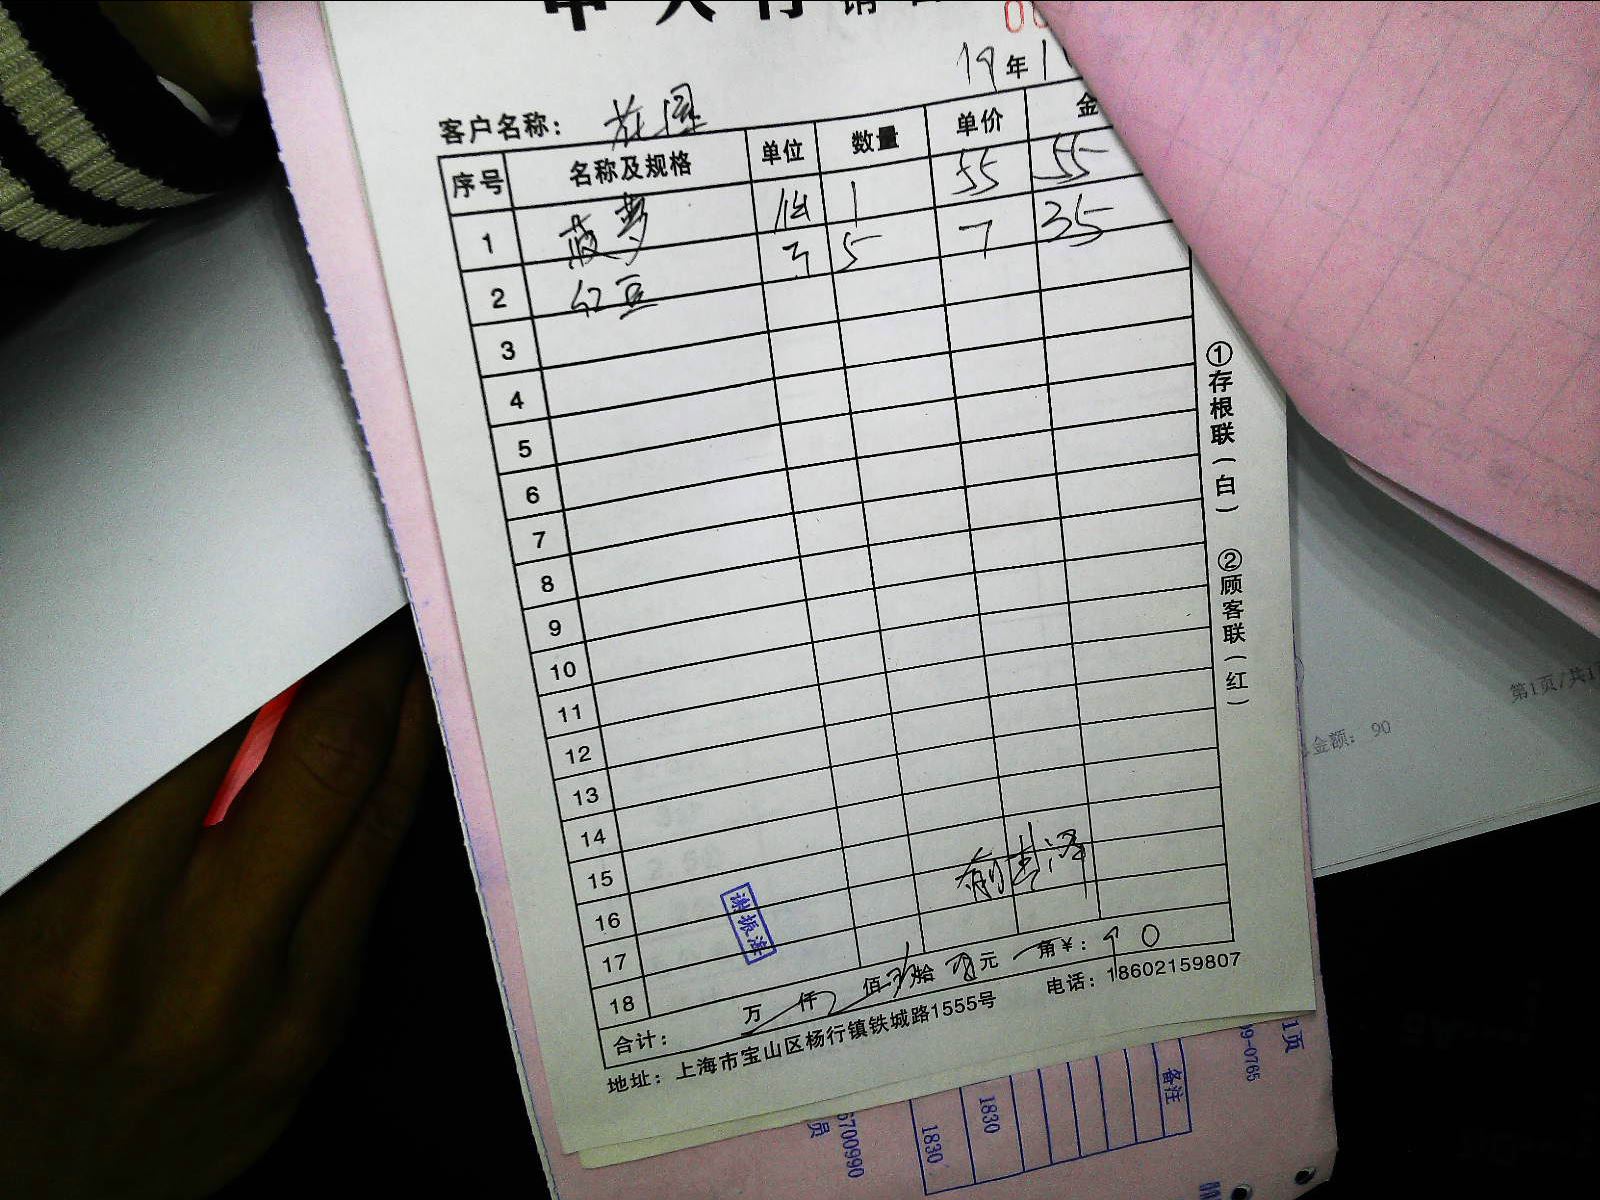 19年1
客户名称：
序号 名称及规格 单位 数量 单价 金
1 菠萝 件 1 55 55
2 红豆 5 7 35
3
4
5
6
7
8
9
10
11
12
13
14
15
16
17
18
谢振海
合计： 万 仟 佰 玖拾 零元 角￥： 90
地址：上海市宝山区杨行镇铁城路1555号 电话：18602159807
①存根联（白） ②顾客联（红）
第1页/共1
金额： 90
1页
99-0765
备注
1830
1830
6700990
员